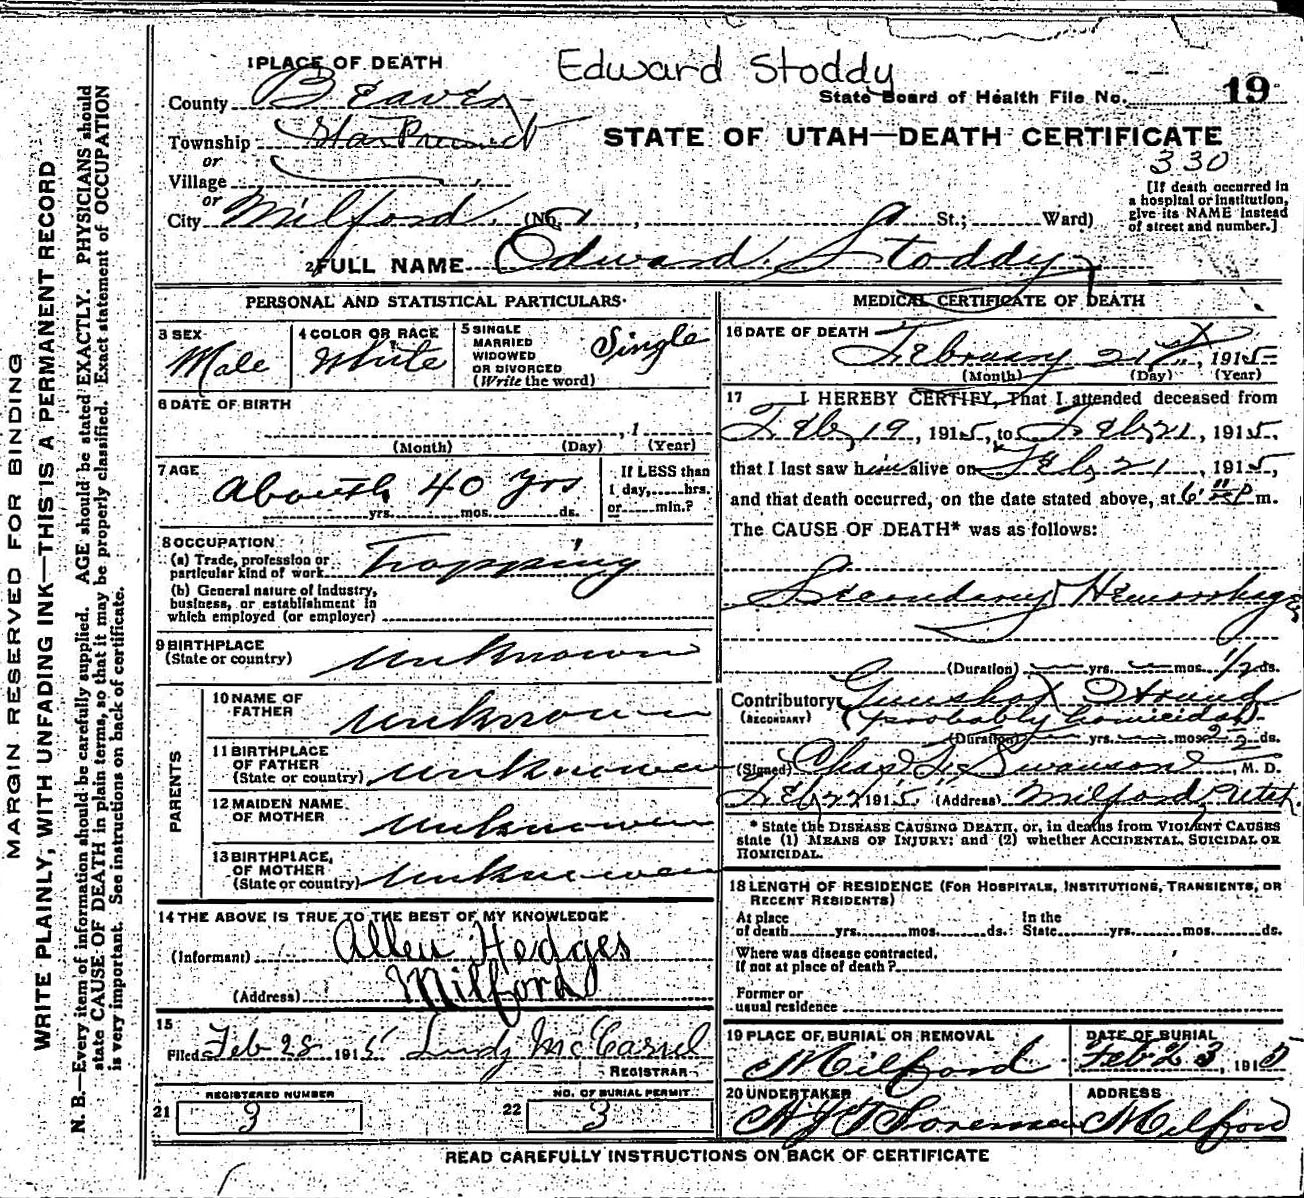 Edward Stoddy
1 PLACE OF DEATH
County Beaver
State Board of Health File No. 19
Township Star Precinct
or
Village
or
City Milford (No. , St.; Ward)
STATE OF UTAH—DEATH CERTIFICATE
330
[If death occurred in
a hospital or institution,
give its NAME instead
of street and number.]
2 FULL NAME Edward Stoddy
PERSONAL AND STATISTICAL PARTICULARS
3 SEX
Male
4 COLOR OR RACE
White
5 SINGLE
MARRIED
WIDOWED
OR DIVORCED
(Write the word)
Single
6 DATE OF BIRTH
, 1
(Month) (Day) (Year)
7 AGE
About 40 yrs
yrs. mos. ds.
If LESS than
1 day, hrs.
or min.?
8 OCCUPATION
(a) Trade, profession or
particular kind of work Trapping
(b) General nature of industry,
business, or establishment in
which employed (or employer)
9 BIRTHPLACE
(State or country) Unknown
PARENTS
10 NAME OF
FATHER Unknown
11 BIRTHPLACE
OF FATHER
(State or country) Unknown
12 MAIDEN NAME
OF MOTHER Unknown
13 BIRTHPLACE
OF MOTHER
(State or country) Unknown
14 THE ABOVE IS TRUE TO THE BEST OF MY KNOWLEDGE
(Informant) Allen Hedges
(Address) Milford
15
Filed Feb 28 1915
REGISTRAR
21 REGISTERED NUMBER
3
22 NO. OF BURIAL PERMIT
3
MEDICAL CERTIFICATE OF DEATH
16 DATE OF DEATH
February 21st, 1915
(Month) (Day) (Year)
17 I HEREBY CERTIFY, That I attended deceased from
Feb 19, 1915, to Feb 21, 1915,
that I last saw him alive on Feb 21, 1915,
and that death occurred, on the date stated above, at 6 P m.
The CAUSE OF DEATH* was as follows:
Secondary Hemorrhage
(Duration) yrs. mos. 1/2 ds.
Contributory Gunshot Wound
(SECONDARY) (probably homicidal)
(Duration) yrs. mos. 2 1/2 ds.
(Signed) Chas. G. Swanson, M. D.
Feb 22 1915 (Address) Milford, Utah.
* State the DISEASE CAUSING DEATH, or, in deaths from VIOLENT CAUSES
state (1) MEANS OF INJURY; and (2) whether ACCIDENTAL, SUICIDAL OR
HOMICIDAL.
18 LENGTH OF RESIDENCE (FOR HOSPITALS, INSTITUTIONS, TRANSIENTS, OR
RECENT RESIDENTS)
At place
of death yrs. mos. ds.
In the
State yrs. mos. ds.
Where was disease contracted,
if not at place of death?
Former or
usual residence
19 PLACE OF BURIAL OR REMOVAL
Milford
DATE OF BURIAL
Feb 23, 1915
20 UNDERTAKER
Sorensen
ADDRESS
Milford
READ CAREFULLY INSTRUCTIONS ON BACK OF CERTIFICATE
MARGIN RESERVED FOR BINDING
WRITE PLAINLY, WITH UNFADING INK—THIS IS A PERMANENT RECORD
N. B.—Every item of information should be carefully supplied. AGE should be stated EXACTLY. PHYSICIANS should
state CAUSE OF DEATH in plain terms, so that it may be properly classified. Exact statement of OCCUPATION
is very important. See instructions on back of certificate.